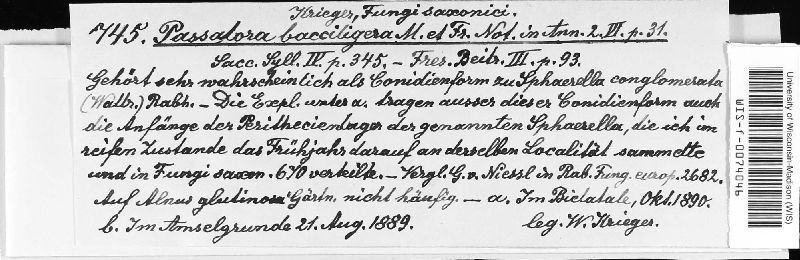 Krieger, Fungi saxonici.
745. Passalora bacciligera M. et Fr. Not. in Ann. 2. VI. p. 31.
Sacc. Syll. IV. p. 345. – Fres. Beitr. III. p. 93.
Gehört sehr wahrscheinlich als Conidienform zu Sphaerella conglomerata
(Wallr.) Rabh. – Die Expl. unter a. tragen ausser dieser Conidienform auch
die Anfänge der Perithecienlager der genannten Sphaerella, die ich im
reifen Zustande das Frühjahr darauf an derselben Localität sammelte
und in Fungi saxon. 670 verteilte. – Vergl. G. v. Niessl in Rab. Fung. europ. 2682.
Auf Alnus glutinosa Gärtn. nicht häufig. – a. Im Bielatale, Okt. 1890.
b. Im Amselgrunde 21. Aug. 1889. leg. W. Krieger.
University of Wisconsin-Madison (WIS)
WIS-f-0074046